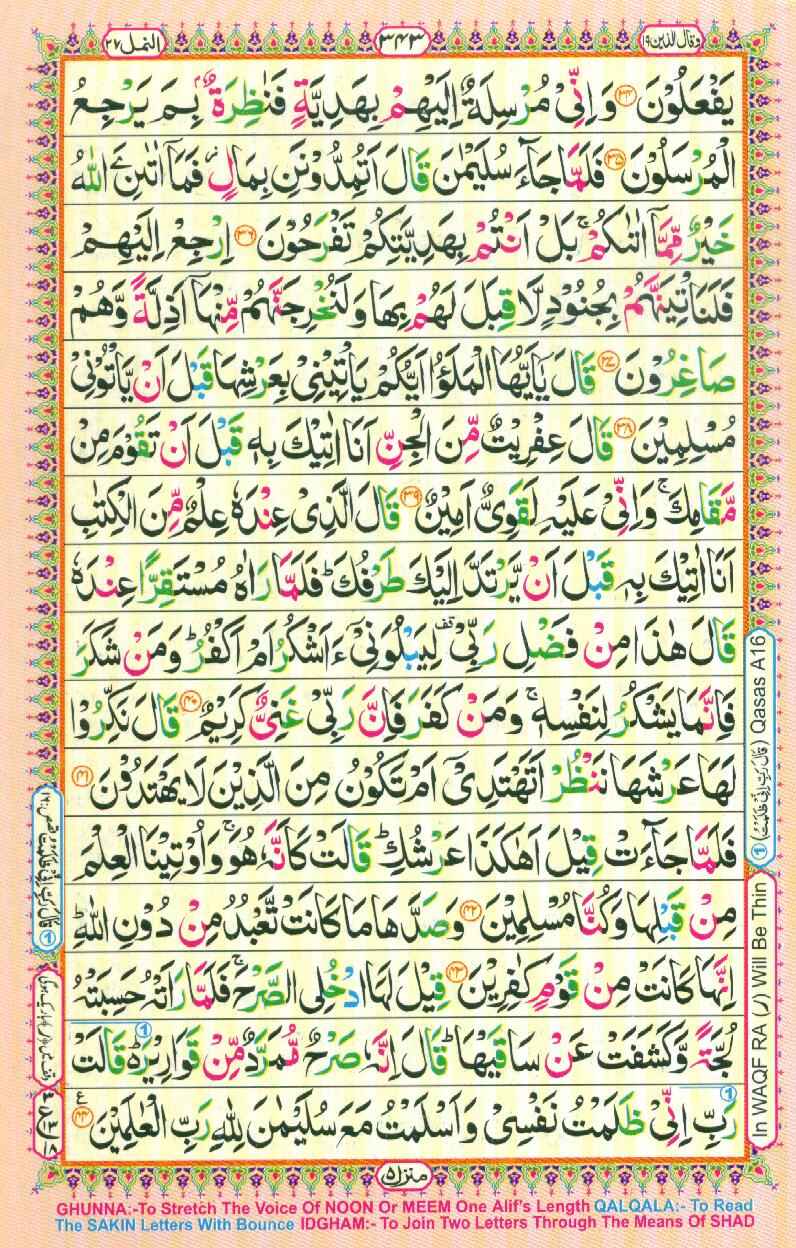 وقال الذين ١٩
٣٤٣
النمل ٢٧
يَفْعَلُوْنَ ﴿۳۴﴾ وَ اِنِّیْ مُرْسِلَةٌ اِلَیْهِمْ بِهَدِیَّةٍ فَنٰظِرَةٌۢ بِمَ یَرْجِعُ
الْمُرْسَلُوْنَ ﴿۳۵﴾ فَلَمَّا جَآءَ سُلَیْمٰنَ قَالَ اَتُمِدُّوْنَنِ بِمَالٍ ؗ فَمَاۤ اٰتٰىنِ َۧ اللّٰهُ
خَیْرٌ مِّمَّاۤ اٰتٰىكُمْ ۚ بَلْ اَنْتُمْ بِهَدِیَّتِكُمْ تَفْرَحُوْنَ ﴿۳۶﴾ اِرْجِعْ اِلَیْهِمْ
فَلَنَاْتِیَنَّهُمْ بِجُنُوْدٍ لَّا قِبَلَ لَهُمْ بِهَا وَ لَنُخْرِجَنَّهُمْ مِّنْهَاۤ اَذِلَّةً وَّ هُمْ
صَاغِرُوْنَ ﴿۳۷﴾ قَالَ یٰۤاَیُّهَا الْمَلَؤُا اَیُّكُمْ یَاْتِیْنِیْ بِعَرْشِهَا قَبْلَ اَنْ یَّاْتُوْنِیْ
مُسْلِمِیْنَ ﴿۳۸﴾ قَالَ عِفْرِیْتٌ مِّنَ الْجِنِّ اَنَا اٰتِیْكَ بِهٖ قَبْلَ اَنْ تَقُوْمَ مِنْ
مَّقَامِكَ ۚ وَ اِنِّیْ عَلَیْهِ لَقَوِیٌّ اَمِیْنٌ ﴿۳۹﴾ قَالَ الَّذِیْ عِنْدَهٗ عِلْمٌ مِّنَ الْكِتٰبِ
اَنَا اٰتِیْكَ بِهٖ قَبْلَ اَنْ یَّرْتَدَّ اِلَیْكَ طَرْفُكَ ؕ فَلَمَّا رَاٰهُ مُسْتَقِرًّا عِنْدَهٗ
قَالَ هٰذَا مِنْ فَضْلِ رَبِّیْ ۫ۖ لِیَبْلُوَنِیْۤ ءَاَشْكُرُ اَمْ اَكْفُرُ ؕ وَ مَنْ شَكَرَ
فَاِنَّمَا یَشْكُرُ لِنَفْسِهٖ ۚ وَ مَنْ كَفَرَ فَاِنَّ رَبِّیْ غَنِیٌّ كَرِیْمٌ ﴿۴۰﴾ قَالَ نَكِّرُوْا
لَهَا عَرْشَهَا نَنْظُرْ اَتَهْتَدِیْۤ اَمْ تَكُوْنُ مِنَ الَّذِیْنَ لَا یَهْتَدُوْنَ ﴿۴۱﴾
فَلَمَّا جَآءَتْ قِیْلَ اَهٰكَذَا عَرْشُكِ ؕ قَالَتْ كَاَنَّهٗ هُوَ ۚ وَ اُوْتِیْنَا الْعِلْمَ
مِنْ قَبْلِهَا وَ كُنَّا مُسْلِمِیْنَ ﴿۴۲﴾ وَ صَدَّهَا مَا كَانَتْ تَّعْبُدُ مِنْ دُوْنِ اللّٰهِ ؕ
اِنَّهَا كَانَتْ مِنْ قَوْمٍ كٰفِرِیْنَ ﴿۴۳﴾ قِیْلَ لَهَا ادْخُلِی الصَّرْحَ ۚ فَلَمَّا رَاَتْهُ حَسِبَتْهُ
لُجَّةً وَّ كَشَفَتْ عَنْ سَاقَیْهَا ؕ قَالَ اِنَّهٗ صَرْحٌ مُّمَرَّدٌ مِّنْ قَوَارِیْرَ ؕ۬ قَالَتْ
رَبِّ اِنِّیْ ظَلَمْتُ نَفْسِیْ وَ اَسْلَمْتُ مَعَ سُلَیْمٰنَ لِلّٰهِ رَبِّ الْعٰلَمِیْنَ ﴿۴۴﴾
ع
منزل ۵
① (قَالَ رَبِّ اِنِّیْ ظَلَمْتُ) Qasas A16
In WAQF RA (ر) Will Be Thin
GHUNNA:-To Stretch The Voice Of NOON Or MEEM One Alif's Length QALQALA:- To Read
The SAKIN Letters With Bounce IDGHAM:- To Join Two Letters Through The Means Of SHAD